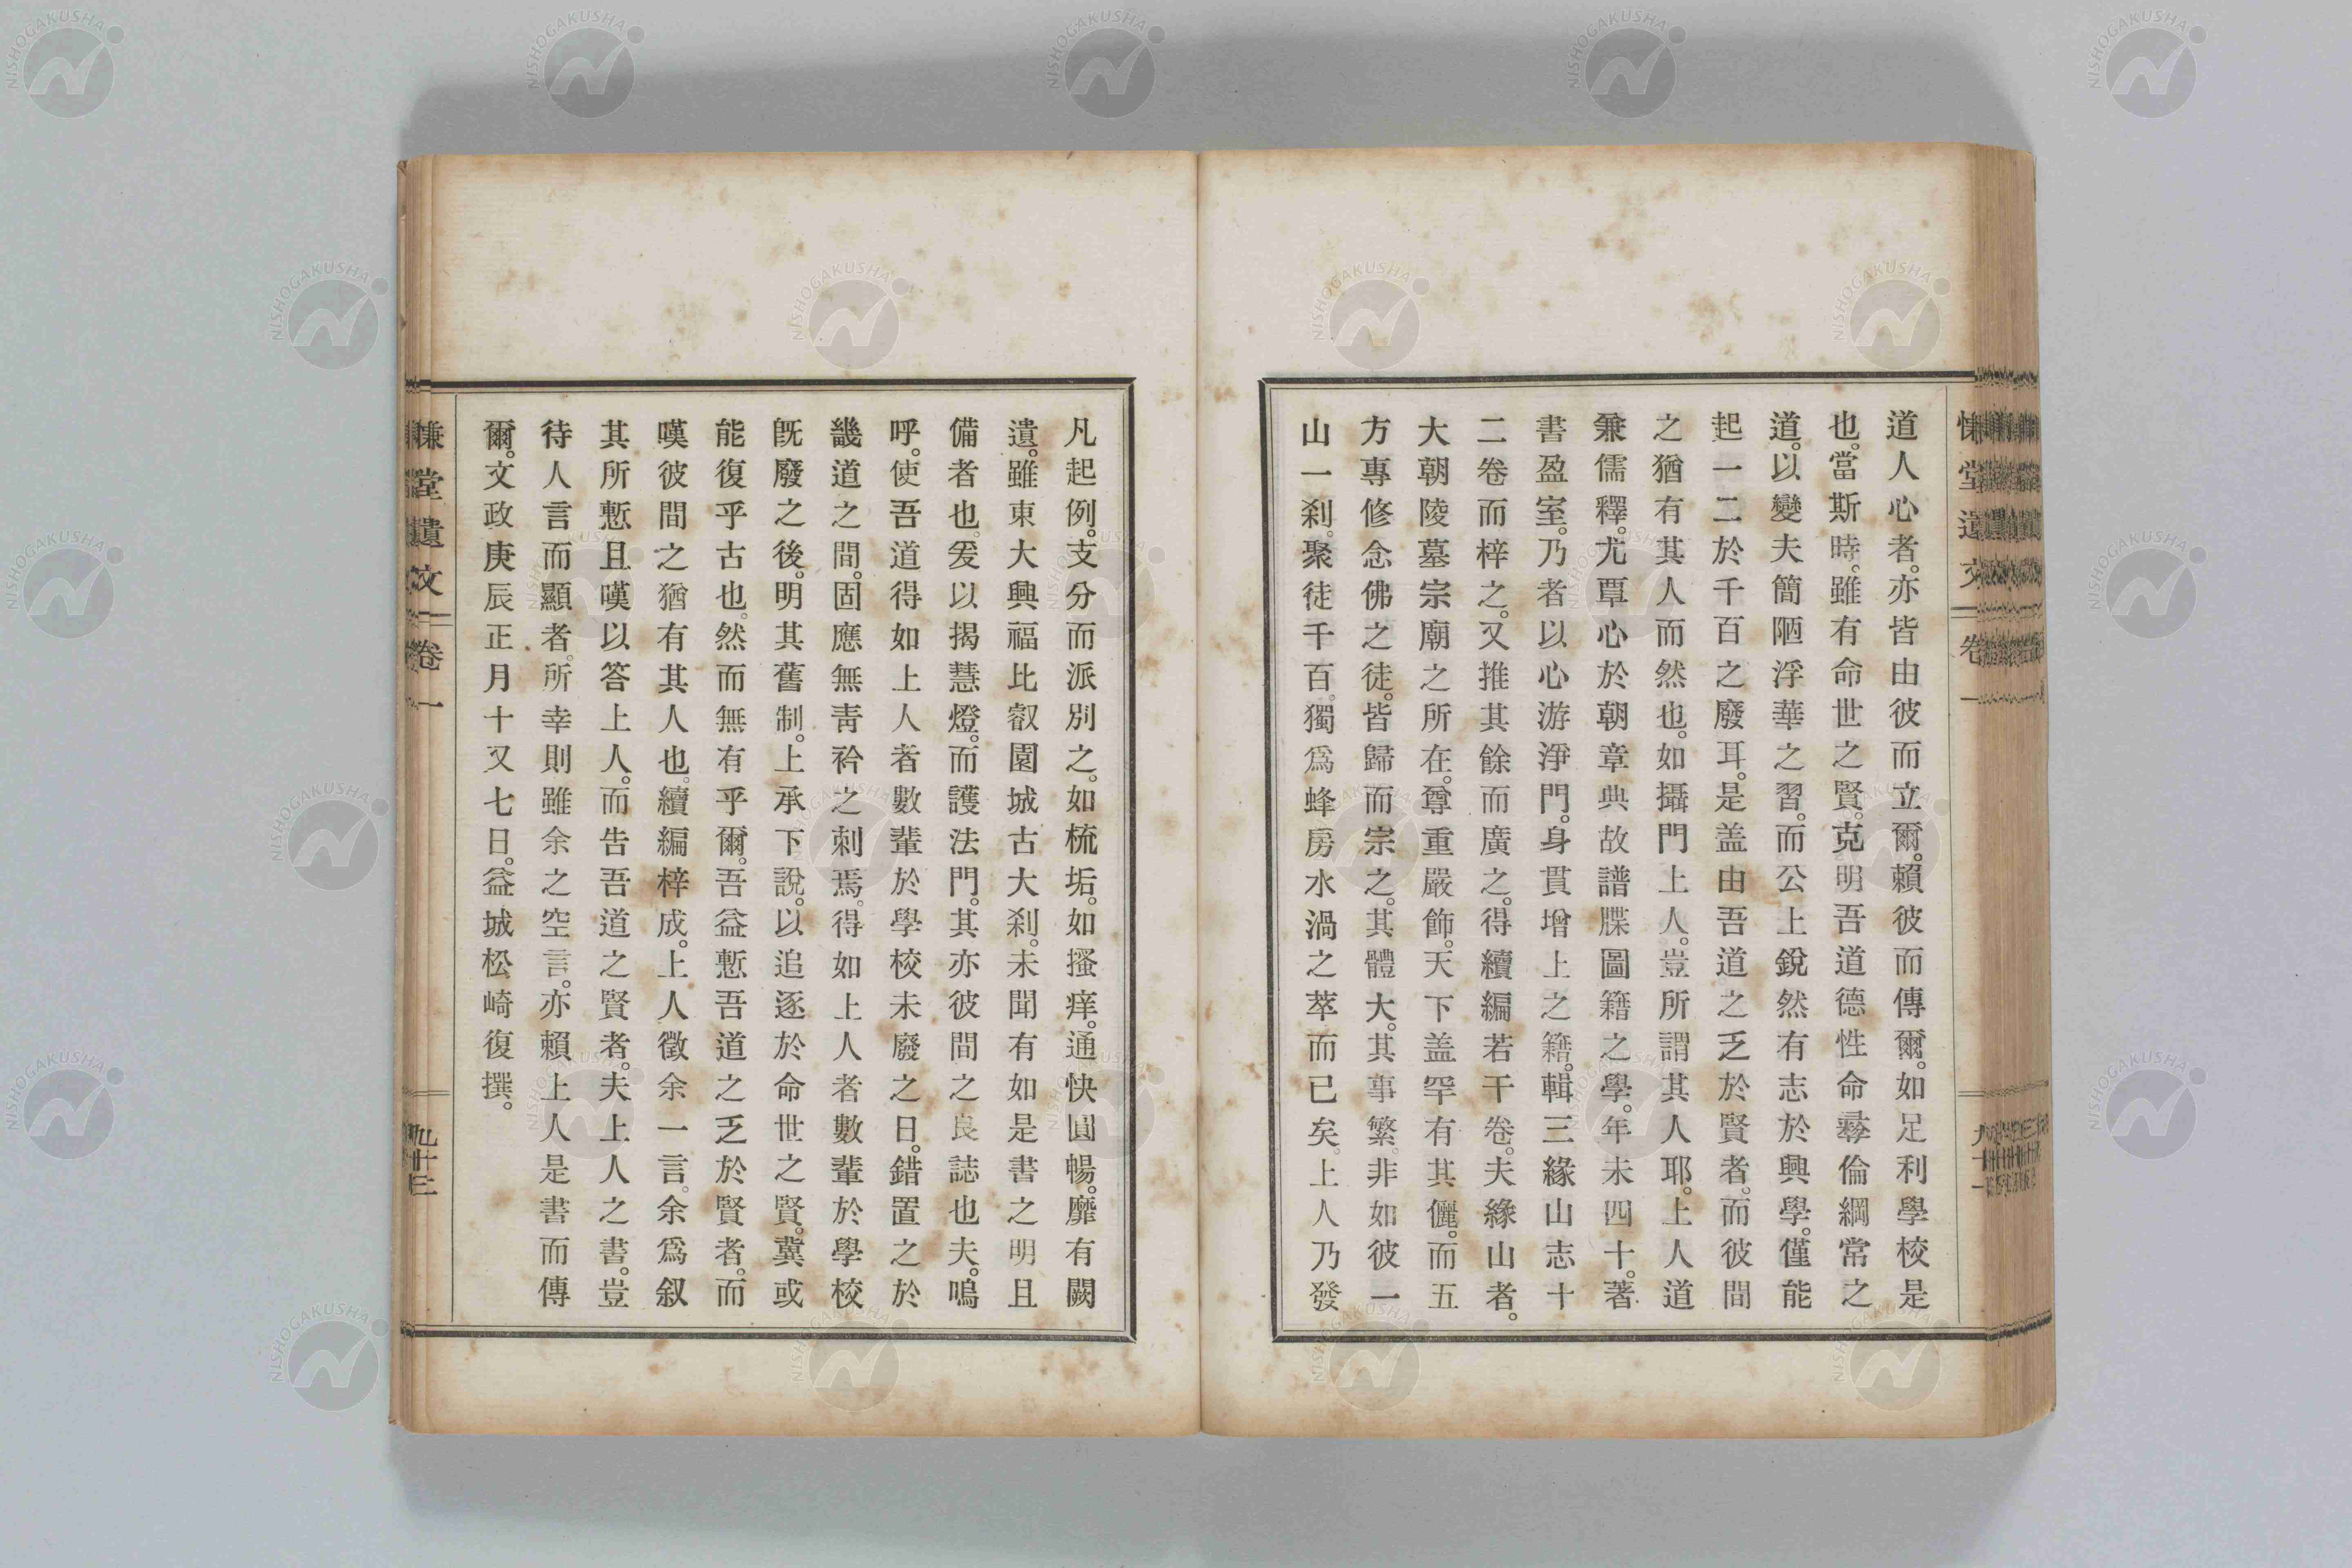 道人心者。亦皆由彼而立爾。賴彼而傳爾。如足利學校是
也。當斯時。雖有命世之賢。克明吾道德性命彝倫綱常之
道。以變夫簡陋浮華之習。而公上銳然有志於興學。僅能
起一二於千百之廢耳。是盖由吾道之乏於賢者。而彼間
之猶有其人而然也。如攝門上人。豈所謂其人耶。上人道
兼儒釋。尤覃心於朝章典故譜牒圖籍之學。年未四十。著
書盈室。乃者以心游淨門。身貫增上之籍。輯三緣山志十
二卷而梓之。又推其餘而廣之。得續編若干卷。夫緣山者。
大朝陵墓宗廟之所在。尊重嚴飾。天下盖罕有其儷。而五
方專修念佛之徒。皆歸而宗之。其體大。其事繁。非如彼一
山一刹。聚徒千百。獨爲蜂房水渦之萃而已矣。上人乃發
慊堂遺文 卷一
凡起例。支分而派別之。如梳垢。如搔痒。通快圓暢。靡有闕
遺。雖東大興福比叡園城古大刹。未聞有如是書之明且
備者也。爰以揭慧燈。而護法門。其亦彼間之良誌也夫。嗚
呼。使吾道得如上人者數輩於學校未廢之日。錯置之於
畿道之間。固應無靑衿之刺焉。得如上人者數輩於學校
旣廢之後。明其舊制。上承下說。以追逐於命世之賢。冀或
能復乎古也。然而無有乎爾。吾益慙吾道之乏於賢者。而
嘆彼間之猶有其人也。續編梓成。上人徵余一言。余爲叙
其所慙且嘆以答上人。而告吾道之賢者。夫上人之書。豈
待人言而顯者。所幸則雖余之空言。亦賴上人是書而傳
爾。文政庚辰正月十又七日。益城松崎復撰。
慊堂遺文 卷一 九十三
NISHOGAKUSHA